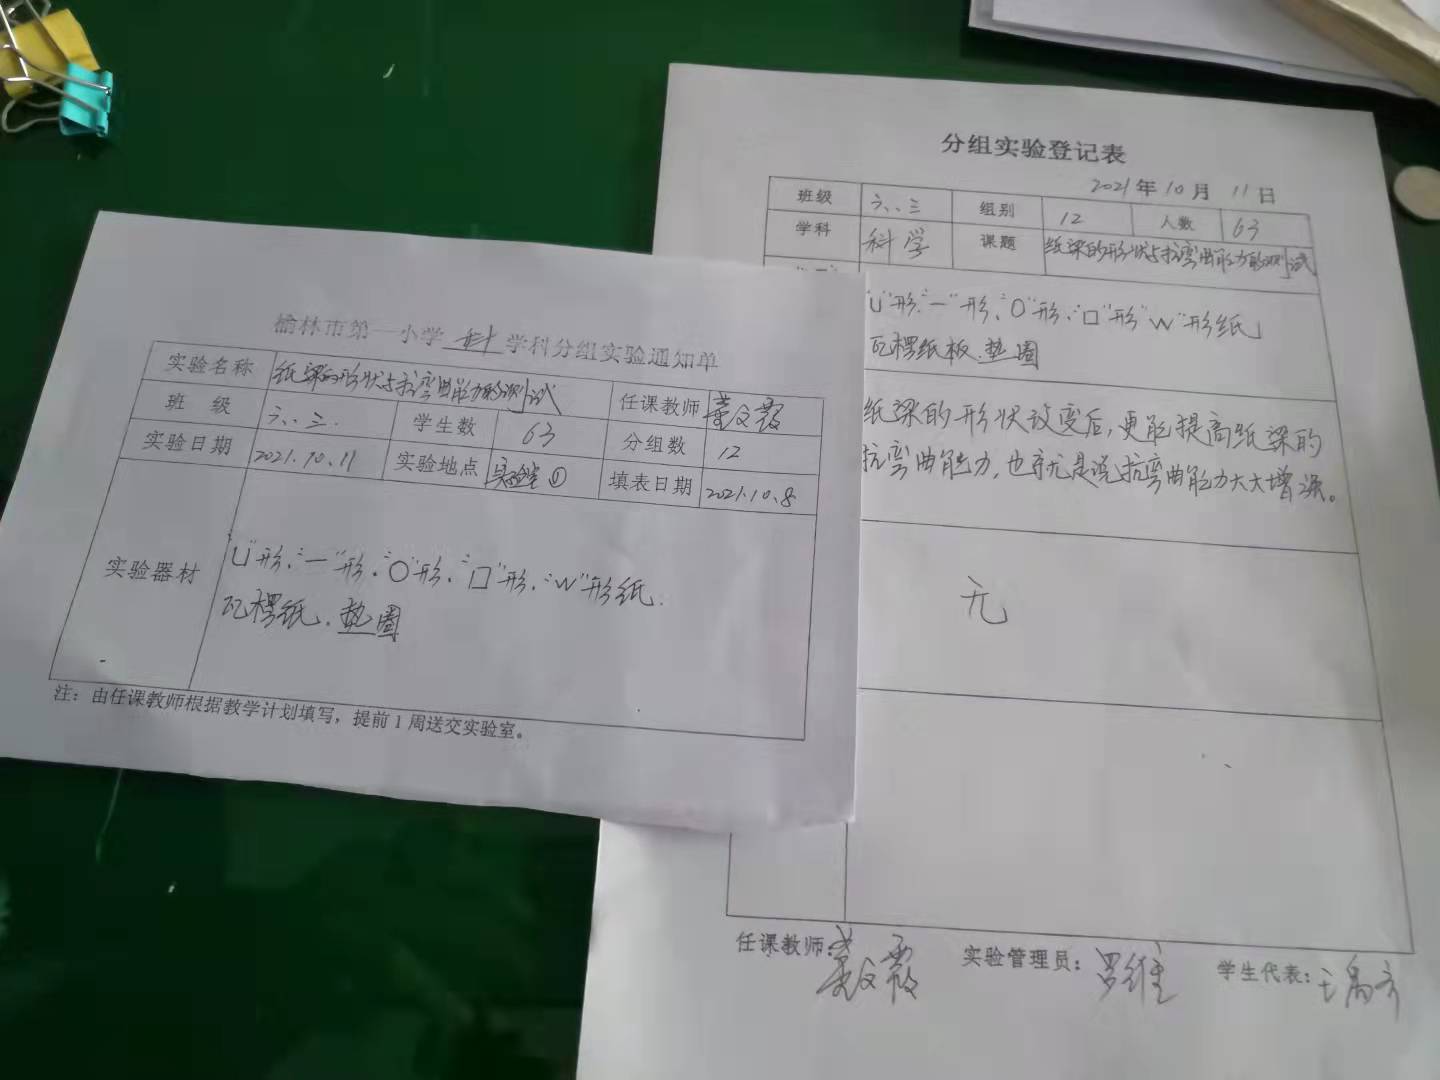 榆林市第一小学 科 学科分组实验通知单
实验名称 纸梁的形状与抗弯曲能力的测试 任课教师 董文霞
班 级 六、三. 学生数 63 分组数 12
实验日期 2021.10.11 实验地点 实验室① 填表日期 2021.10.8
实验器材 "U"形、"一"形、"O"形、"口"形、"W"形纸.
瓦楞纸、垫圈
注：由任课教师根据教学计划填写，提前1周送交实验室。
分组实验登记表
2021年10月11日
班级 六、三 组别 12 人数 63
学科 科学 课题 纸梁的形状与抗弯曲能力的测试
"U"形、"一"形、"O"形、"口"形"W"形纸
瓦楞纸板、垫圈
纸梁的形状改变后，更能提高纸梁的
抗弯曲能力，也就是说抗弯曲能力大大增强。
无
任课教师：董文霞 实验管理员：罗维 学生代表：